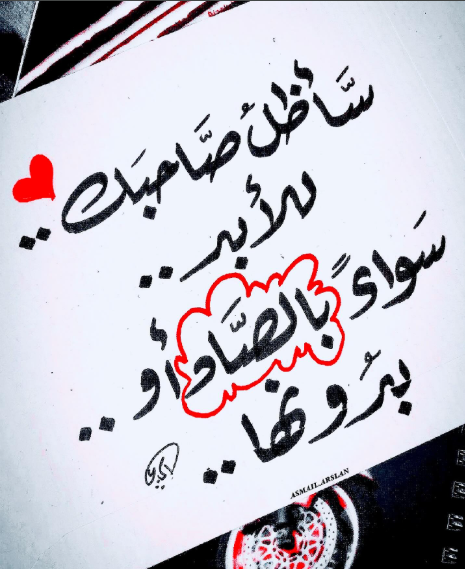 سَأظلُ صَاحبَك ..
للأبد ..
سَواءً بالصَّاد أو ..
بدُونها ..
ASMAIL.ARSLAN